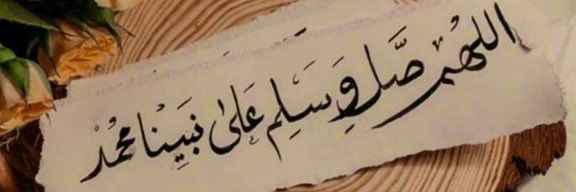 اللهم صَّل وَسَلِم عَلىٰ نبَيِنا محمد